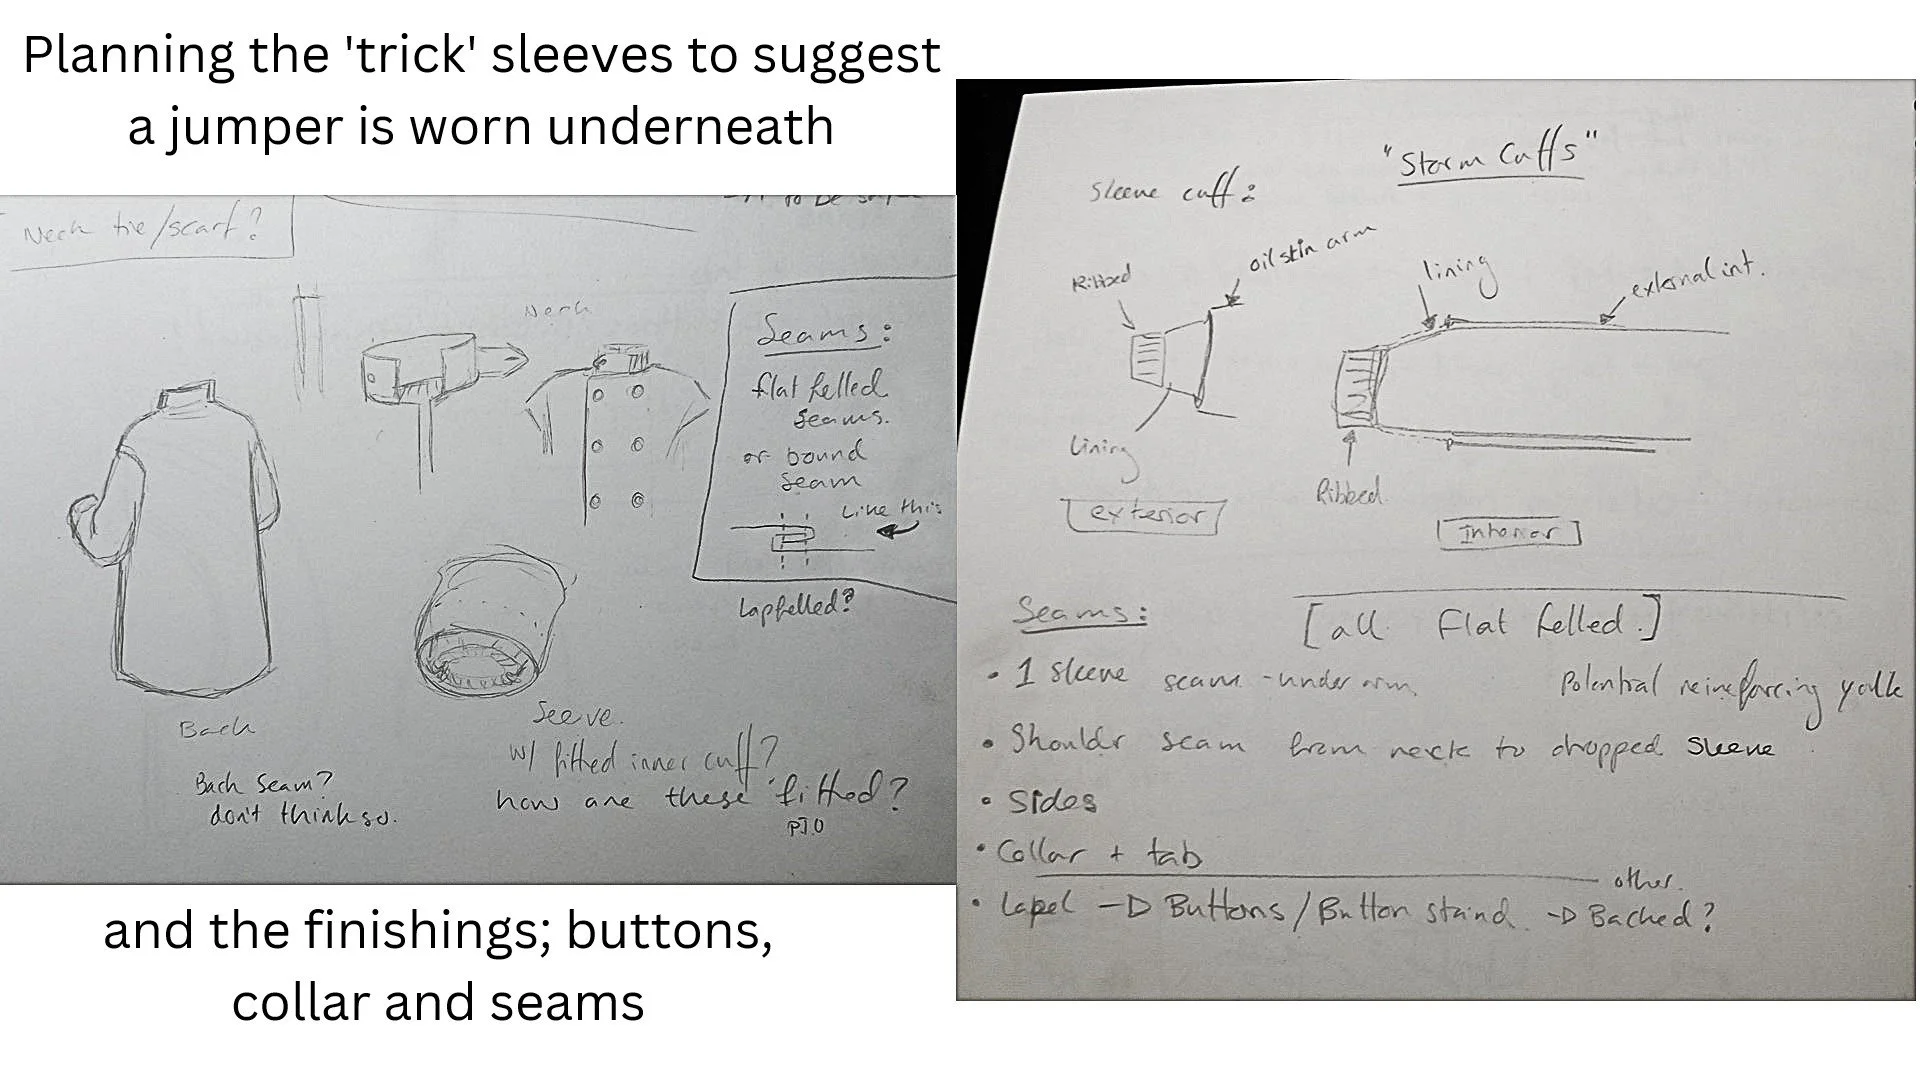 Planning the 'trick' sleeves to suggest
a jumper is worn underneath
Neck tie/scarf?
to be
Neck
Seams:
flat felled
seams.
or bound
seam
Like this
Lapfelled?
Back
Back seam?
don't think so.
Seeve.
w/ fitted inner cuff?
how are these 'fitted?
PTO
and the finishings; buttons,
collar and seams
"Storm Cuffs"
Sleeve cuff:
Ribbed
oilskin arm
lining
exterior
lining
external int.
Ribbed
Interior
Seams:
[all flat felled.]
• 1 sleeve seam - under arm.
Potential reineforcing yolk
• Shouldr seam from neck to dropped sleeve
• Sides
• Collar + tab
other.
• Lapel → Buttons/Button stand → Backed?